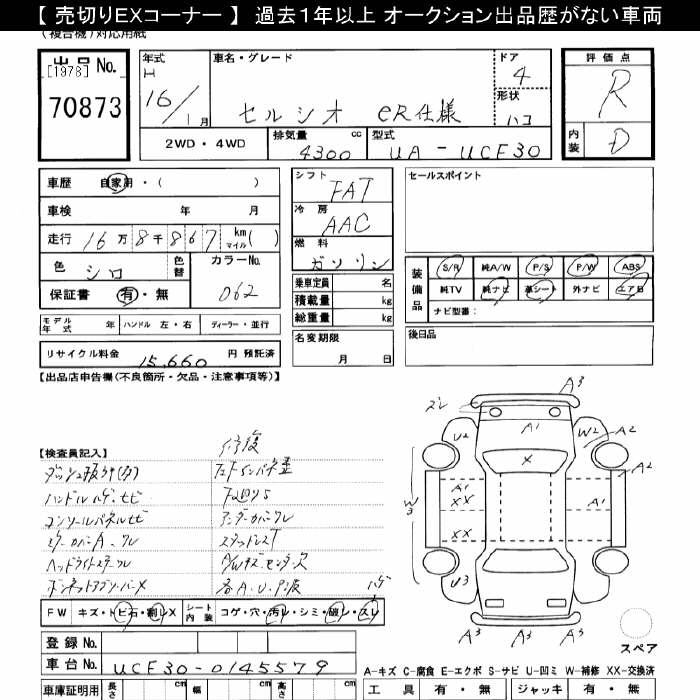 【 売切りEXコーナー 】 過去1年以上 オークション出品歴がない車両
(複合機)対応用紙
出品 No.
[1978]
70873
年式
H
16/1月
車名・グレード
セルシオ eR仕様
ドア
4
形状
ハコ
評価点
R
内装
D
2WD・4WD
排気量 cc
4300
型式
UA-UCF30
車歴 自家用・( )
車検 年 月
走行 16万8千867 km マイル( )
色 シロ
色替
カラーNo.
062
保証書 有・無
シフト
FAT
冷房
AAC
燃料
ガソリン
乗車定員 名
積載量 kg
総重量 kg
名変期限
月 日
セールスポイント
装備品
S/R 純A/W P/S P/W ABS
純TV 純ナビ 革シート 外ナビ エアB
ナビ型番:
後日品
モデル年式 年 ハンドル 左・右 ディーラー・並行
リサイクル料金 15,660 円 預託済
【出品店申告欄(不良箇所・欠品・注意事項等)】
【検査員記入】
修復
コンソールパネルキビ アンダーカバーワレ
ヘッドライトスケール
各A.U.P.波
FW キズ・トビ石・割レX
シート内装 コゲ・穴・汚レ・シミ・破レ・スレ
登録 No.
車台 No. UCF30-0145579
車庫証明用 長さ cm 幅 cm 高さ cm
A3
ズレ
A1
U2
W2
A2
X
A2
W3
A1
XX
A1
XX
U3
A3 A3 A3
スペア
A-キズ C-腐食 E-エクボ S-サビ U-凹ミ W-補修 XX-交換済
工具 有・無 ジャッキ 有・無